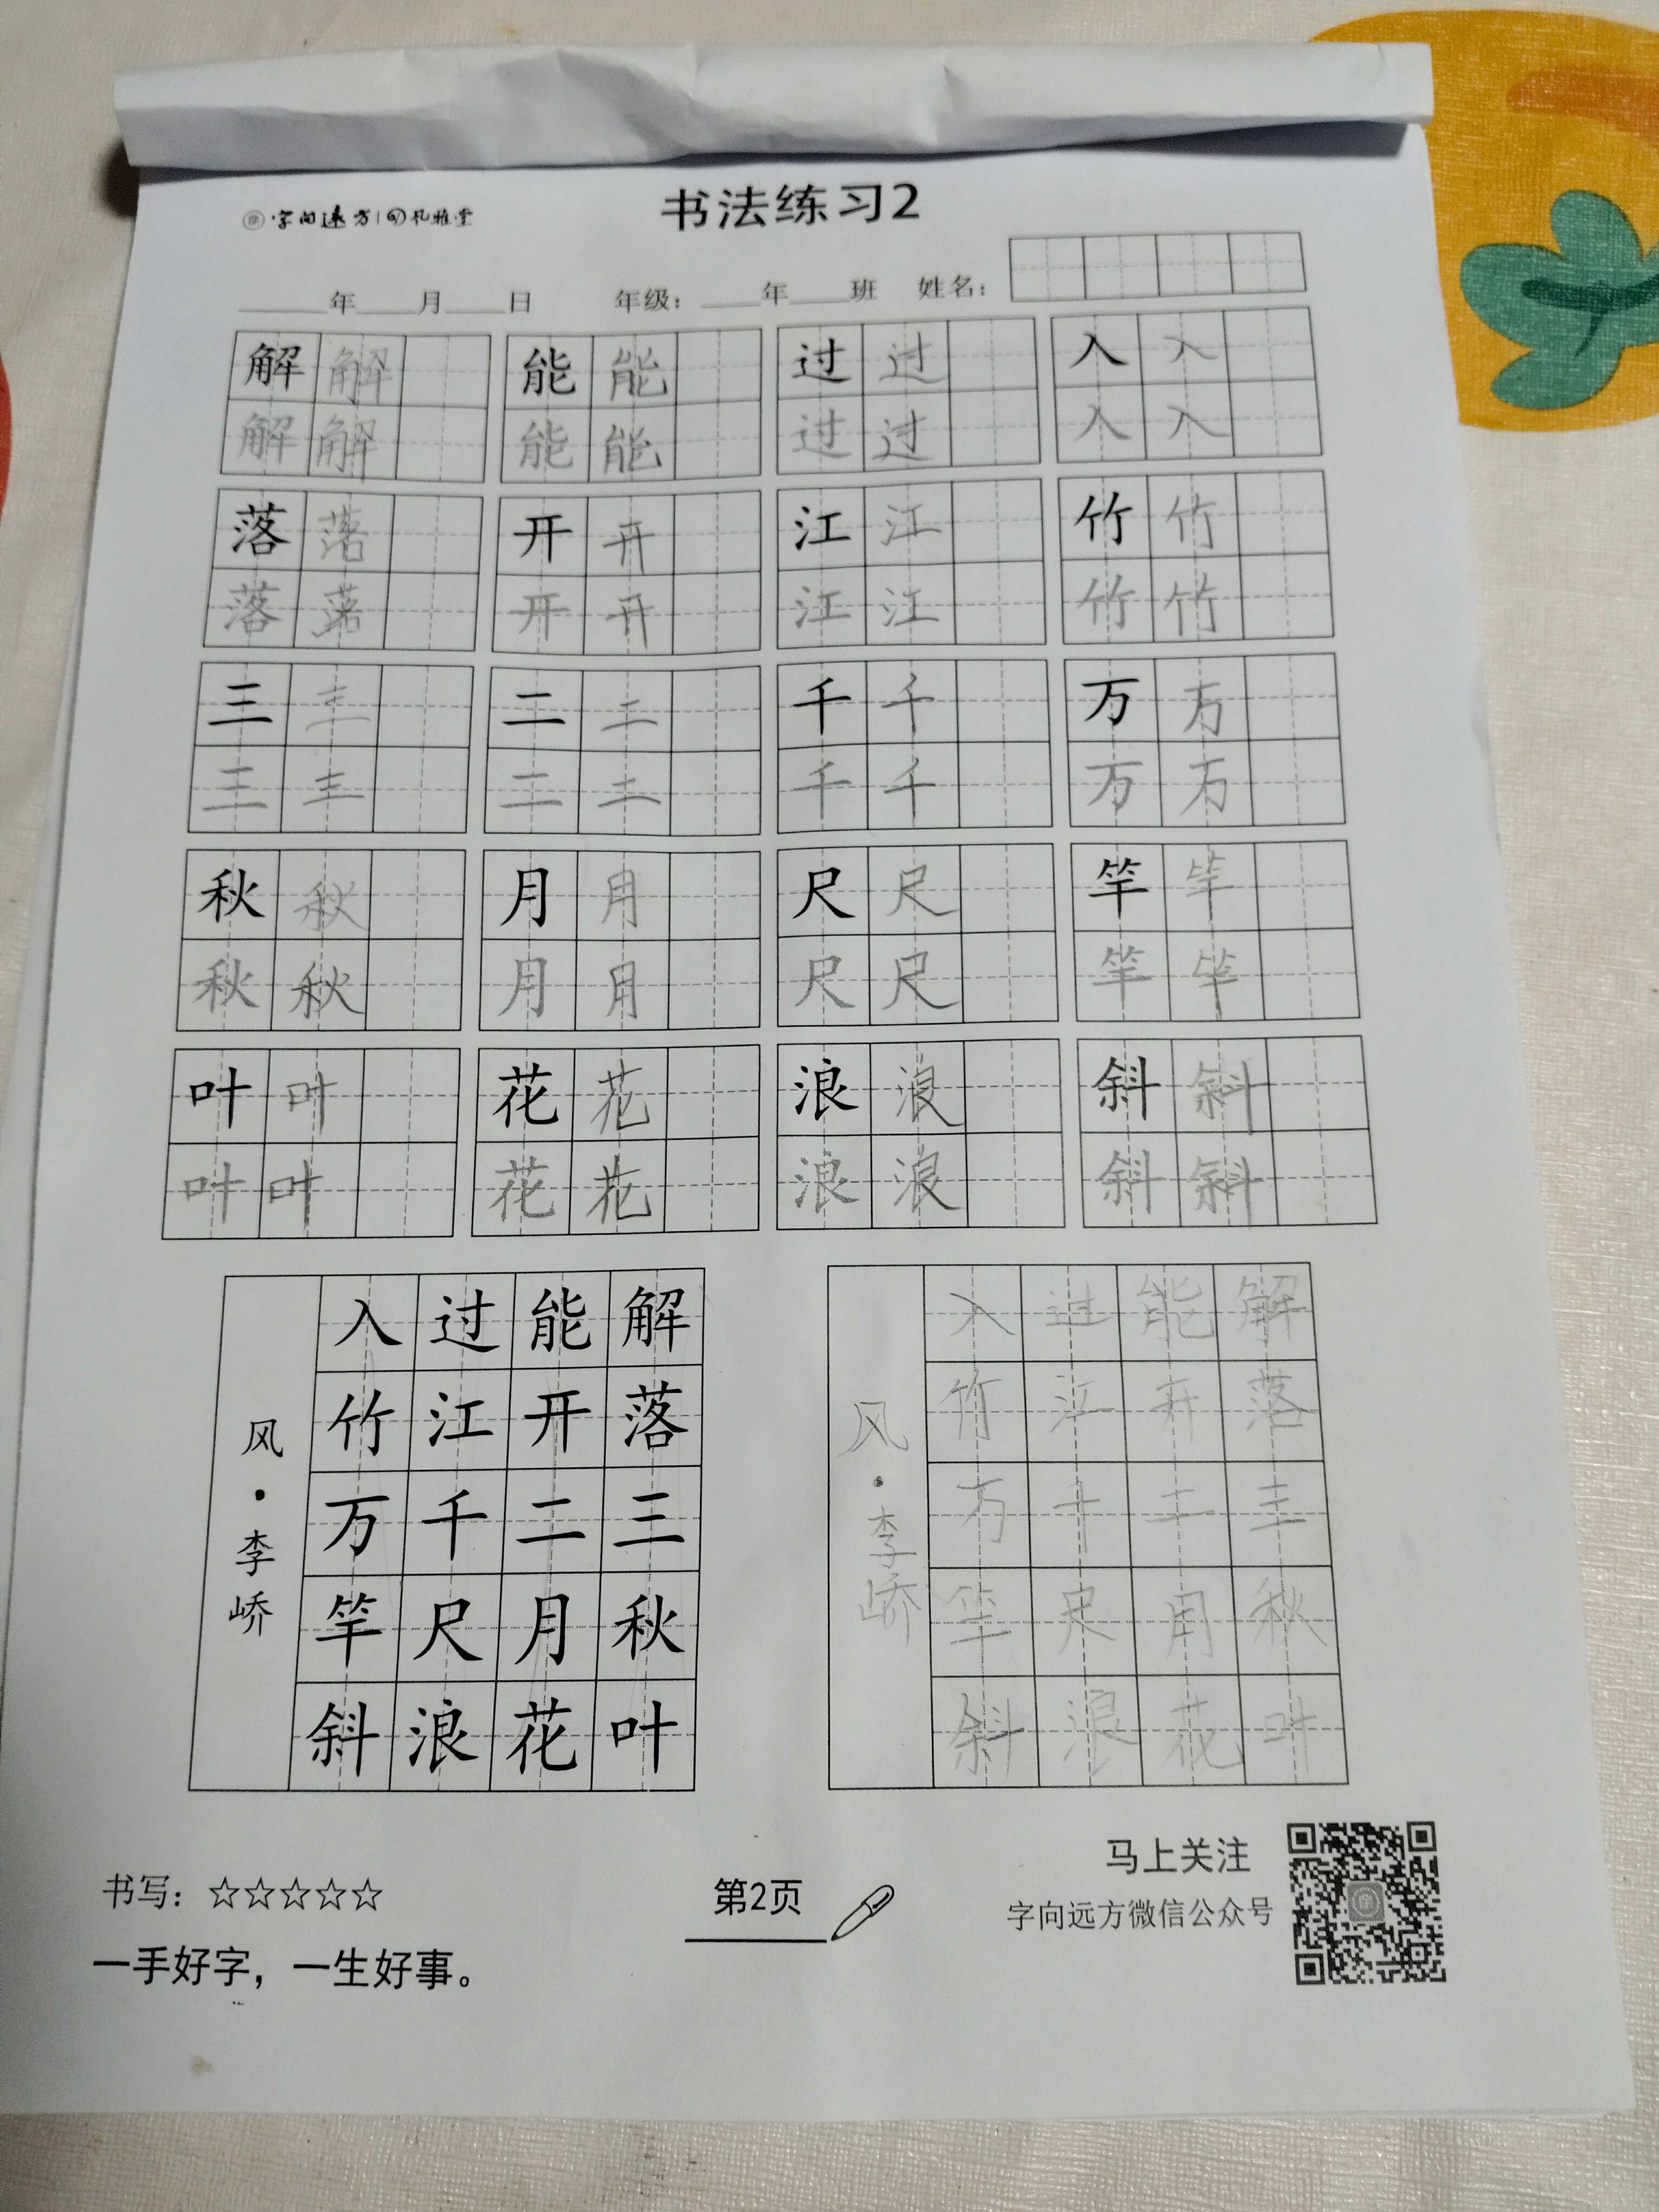 字向远方 | 孔雅堂
书法练习2
年 月 日 年级: 年 班 姓名:
解 解 能 能 过 过 入 入
解 解 能 能 过 过 入 入
落 落 开 开 江 江 竹 竹
落 落 开 开 江 江 竹 竹
三 三 二 二 千 千 万 万
三 三 二 二 千 千 万 万
秋 秋 月 月 尺 尺 竿 竿
秋 秋 月 月 尺 尺 竿 竿
叶 叶 花 花 浪 浪 斜 斜
叶 叶 花 花 浪 浪 斜 斜
解落三秋叶
能开二月花
过江千尺浪
入竹万竿斜
风·李峤
解落三秋叶
能开二月花
过江千尺浪
入竹万竿斜
风·李峤
书写: ☆☆☆☆☆
一手好字，一生好事。
第2页
马上关注
字向远方微信公众号